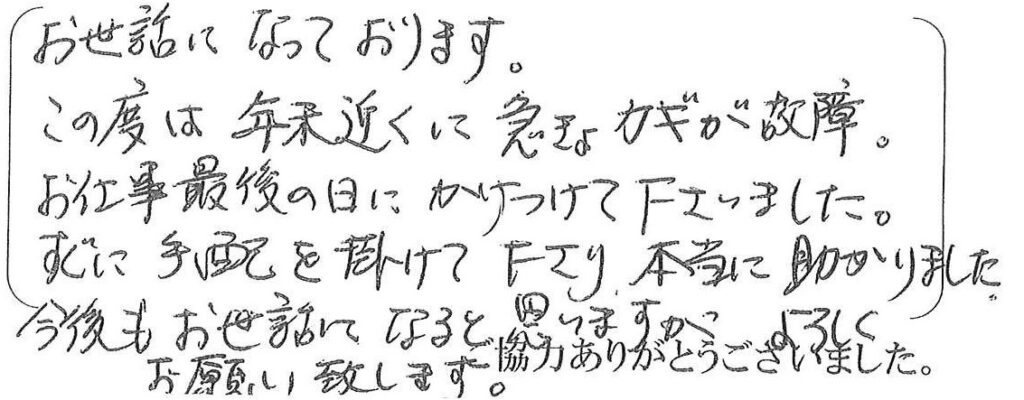 お世話になっております。
この度は年末近くに急きょカギが故障。
お仕事最後の日にかけつけて下さいました。
すぐに手配を掛けて下さり、本当に助かりました
今後もお世話になると思いますがよろしく
お願い致します。
ご協力ありがとうございました。